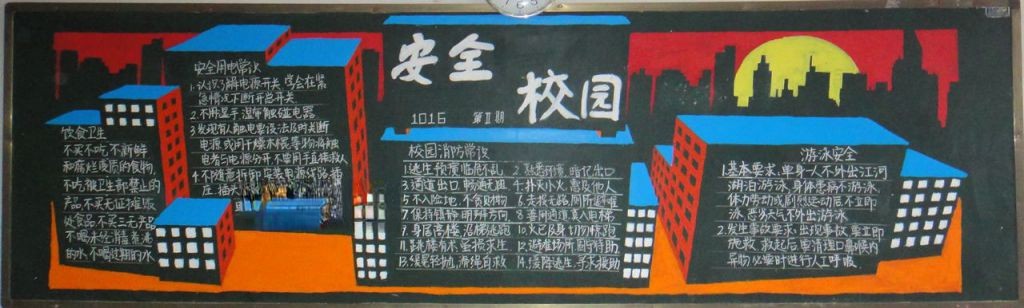 安全
校园
1016 第Ⅱ期
饮食卫生
不买不吃不新鲜
和腐烂变质的食物
不吃被卫生部禁止的
产品不买无证摊贩
处食品不买三无产品
的水不喝过期的水
安全用电常识
1.认识了解电源开关 学会在紧
急情况下断开总开关
2.不用湿手 湿布触碰电器
3.发现有人触电要设法及时断
电源 或用干燥木棍等物将触
电者与电源分开 不要用手直接救人
4.不随意拆卸安装电源线路 插
座 插头
校园消防常识
1.逃生预演 临危不乱 2.熟悉环境 暗记出口
3.通道出口 畅通无阻 4.扑灭小火 惠及他人
5.不入险地 不贪财物
7.保持镇静 明辨方向 8.善用通道 莫入电梯
10.火已及身 切勿惊跑
12.避难场所 固守待助
13.缓晃轻抛 寻求援助
14.缓降逃生
游泳安全
1.基本要求,单身一人不外出江河
湖泊游泳,身体患病不游泳
体力劳动或剧烈运动后不立即
泳 恶劣天气不外出游泳
2.发生事故要求:出现事故 要立即
施救 救起后要清理口鼻喉内
异物 必要时进行人工呼吸